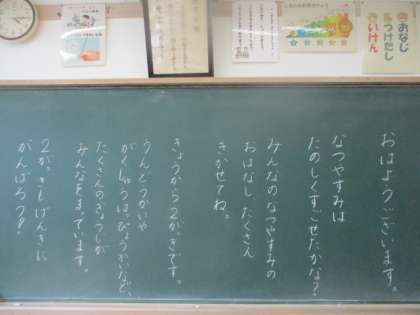 おはようございます。
なつやすみは
たのしくすごせたかな？
みんなのなつやすみの
おはなし、たくさん
きかせてね。
きょうから２がっきです。
うんどうかいや
がくしゅうはっぴょうかいなど、
たくさんのぎょうじが
みんなをまっています。
２がっきもげんきに
がんばろう！
おなじ
つけたし
いけん